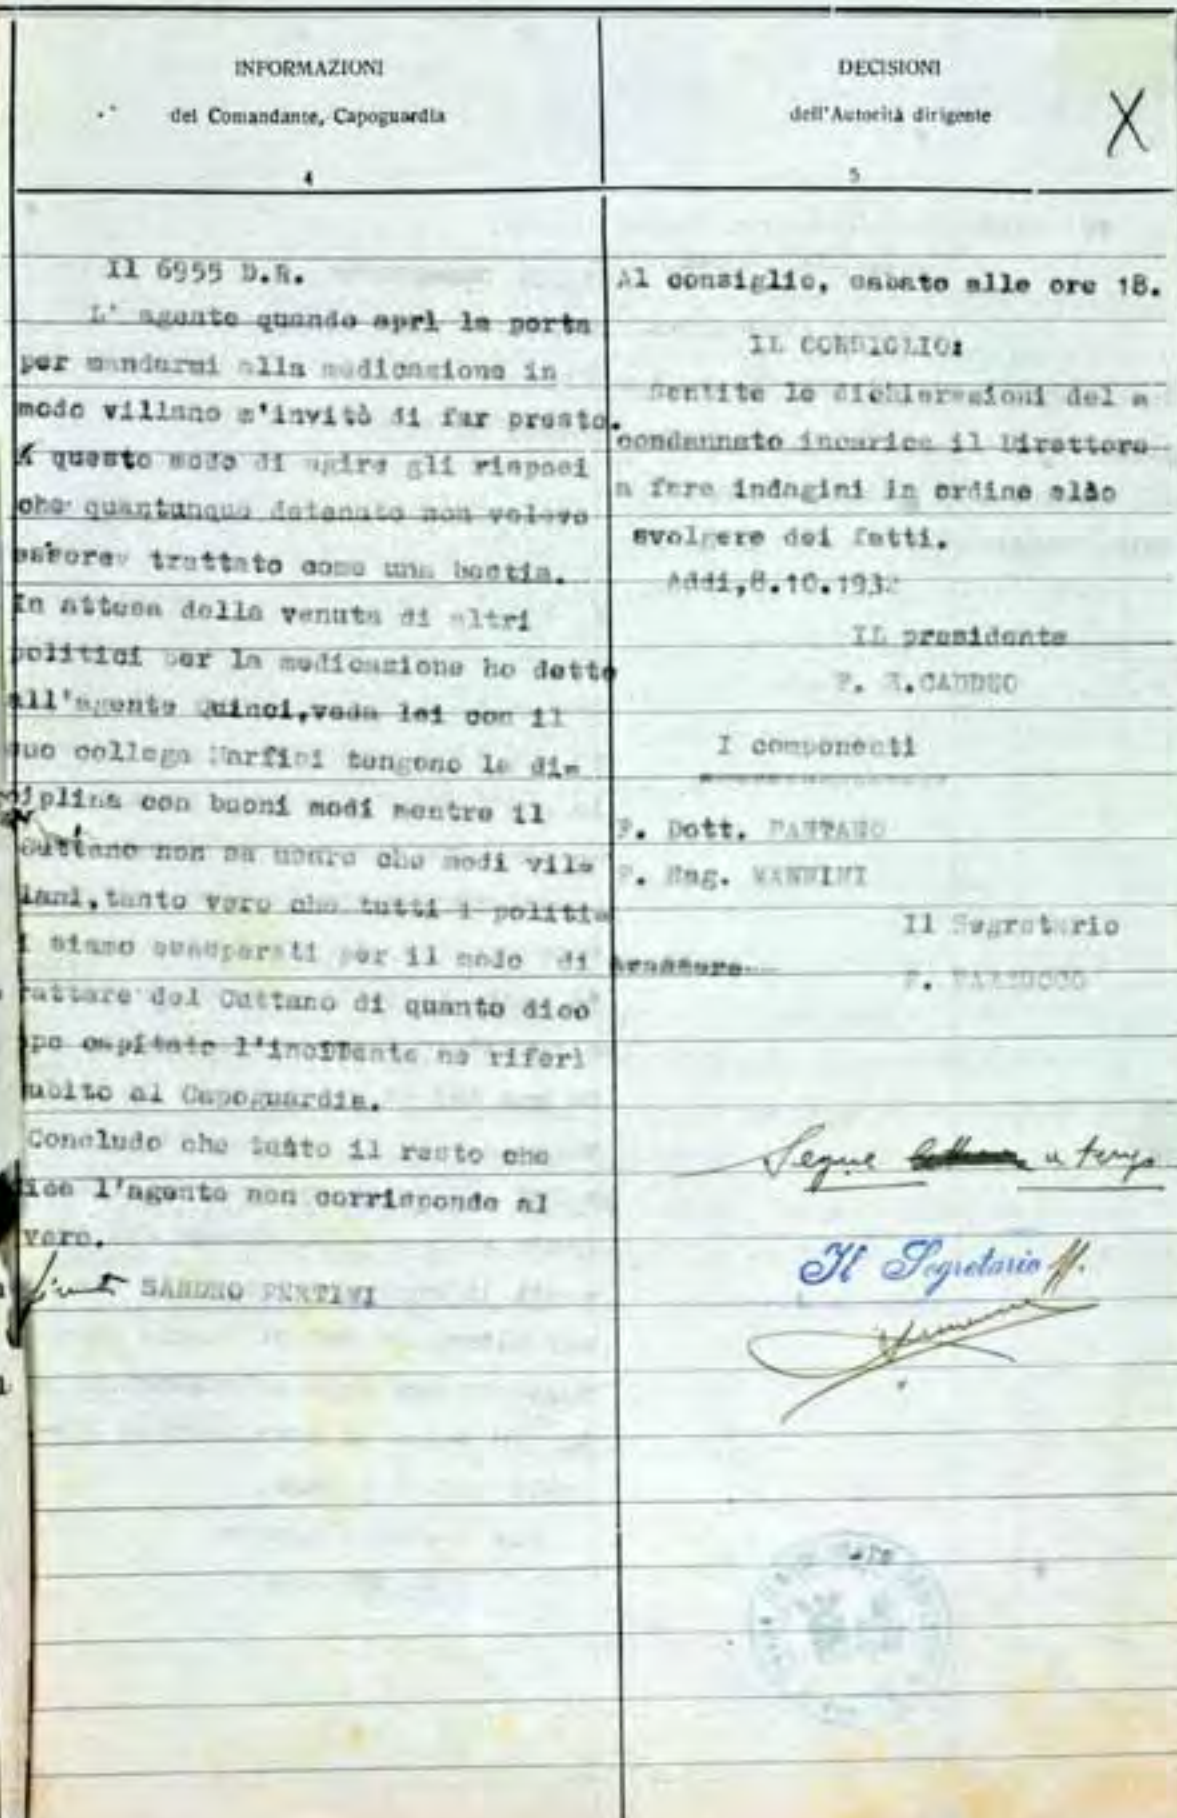 INFORMAZIONI
del Comandante, Capoguardia
4
Il 6955 D.R.
L' agente quando aprì la porta
per mandarmi alla medicazione in
modo villano m'invitò di far presto.
A questo modo di agire gli risposi
che quantunque detenuto non volevo
essere trattato come una bestia.
In attesa della venuta di altri
politici per la medicazione ho detto
all'agente Quinci,veda lei con il
suo collega tengono la di=
ciplina con buoni modi mentre il
Cuttano non sa usare che modi vil=
lani,tanto vero che tutti i politi=
i siamo esasperati per il modo di
rattare del Cuttano di quanto dico
po ospitato l'incidente ne riferì
ubito al Capoguardia.
Concludo che tutto il resto che
ice l'agente non corrisponde al
vero.
SANDRO PERTINI
DECISIONI
dell'Autorità dirigente
X
5
Al consiglio, sabato alle ore 18.
IL CONSIGLIO:
Sentite le dichiarazioni del
condannato incarica il Direttore
a fare indagini in ordine allo
svolgere dei fatti.
Addì,8.10.1932
IL presidente
F. CADDEO
I componenti
F. Dott. PANTANO
F. Rag. MANNINI
Il Segretario
F.
Segue a tergo
Il Segretario ff.